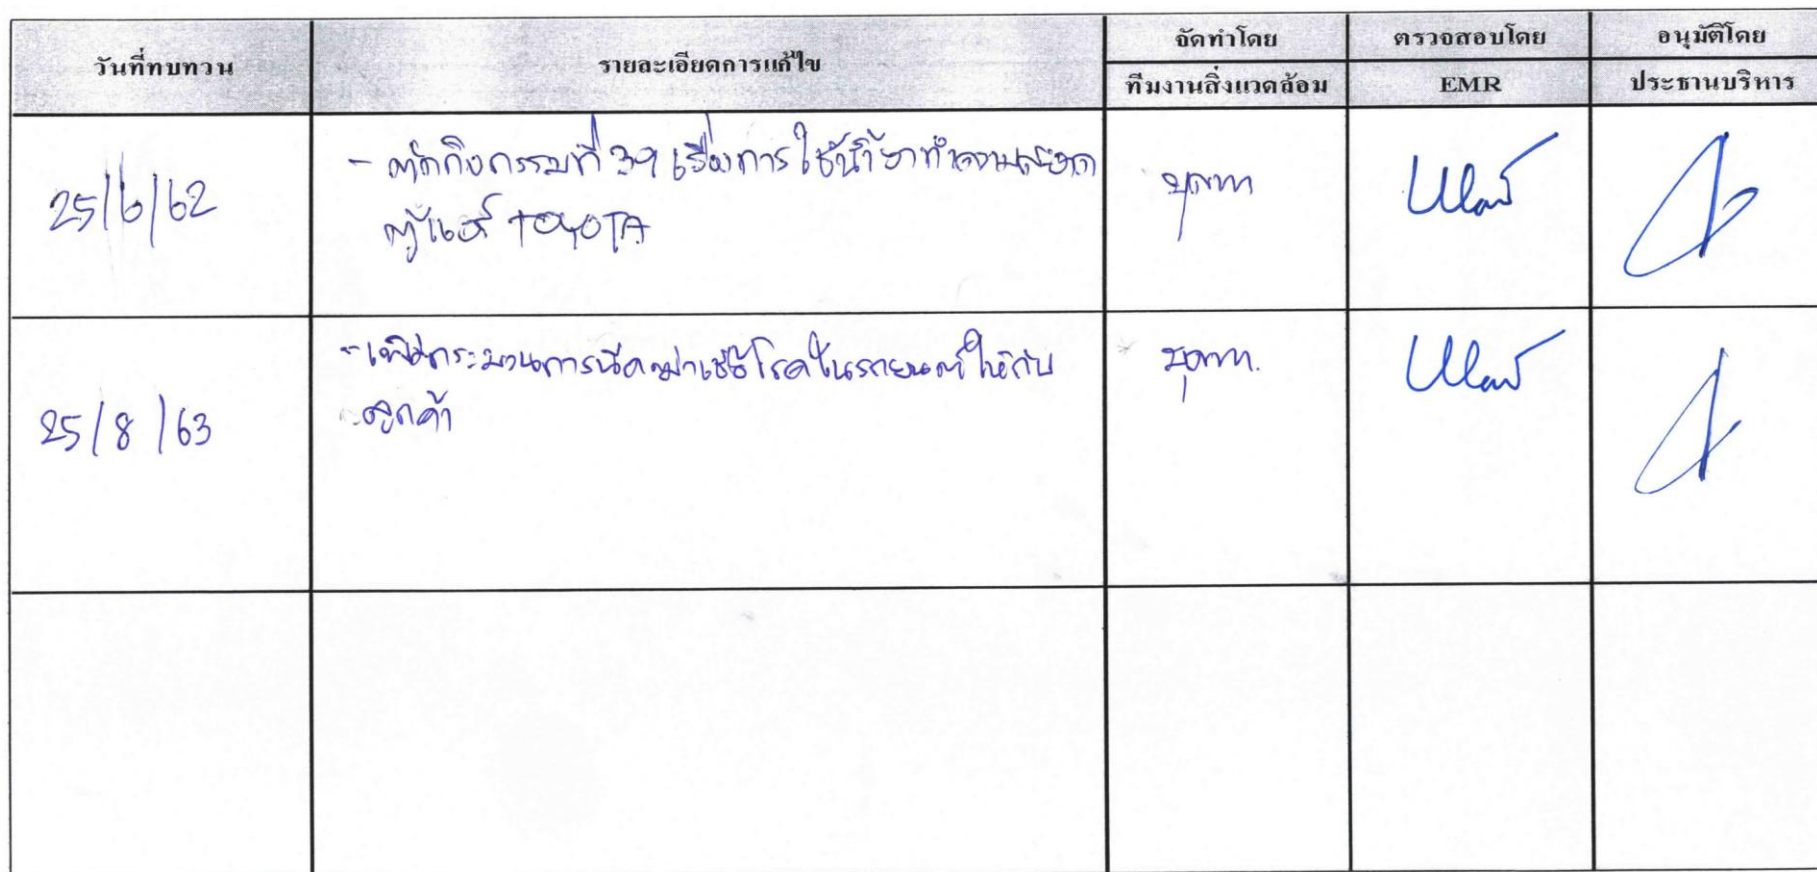 วันที่ทบทวน
รายละเอียดการแก้ไข
จัดทำโดย
ตรวจสอบโดย
อนุมัติโดย
ทีมงานสิ่งแวดล้อม
EMR
ประธานบริหาร
25/6/62
- ตัดกิจกรรมที่ 39 เรื่องการใช้น้ำยาทำความสะอาด
ตู้แอร์ TOYOTA
25/8/63
- เพิ่มกระบวนการฉีดฆ่าเชื้อโรคในรถยนต์ให้กับ
ลูกค้า